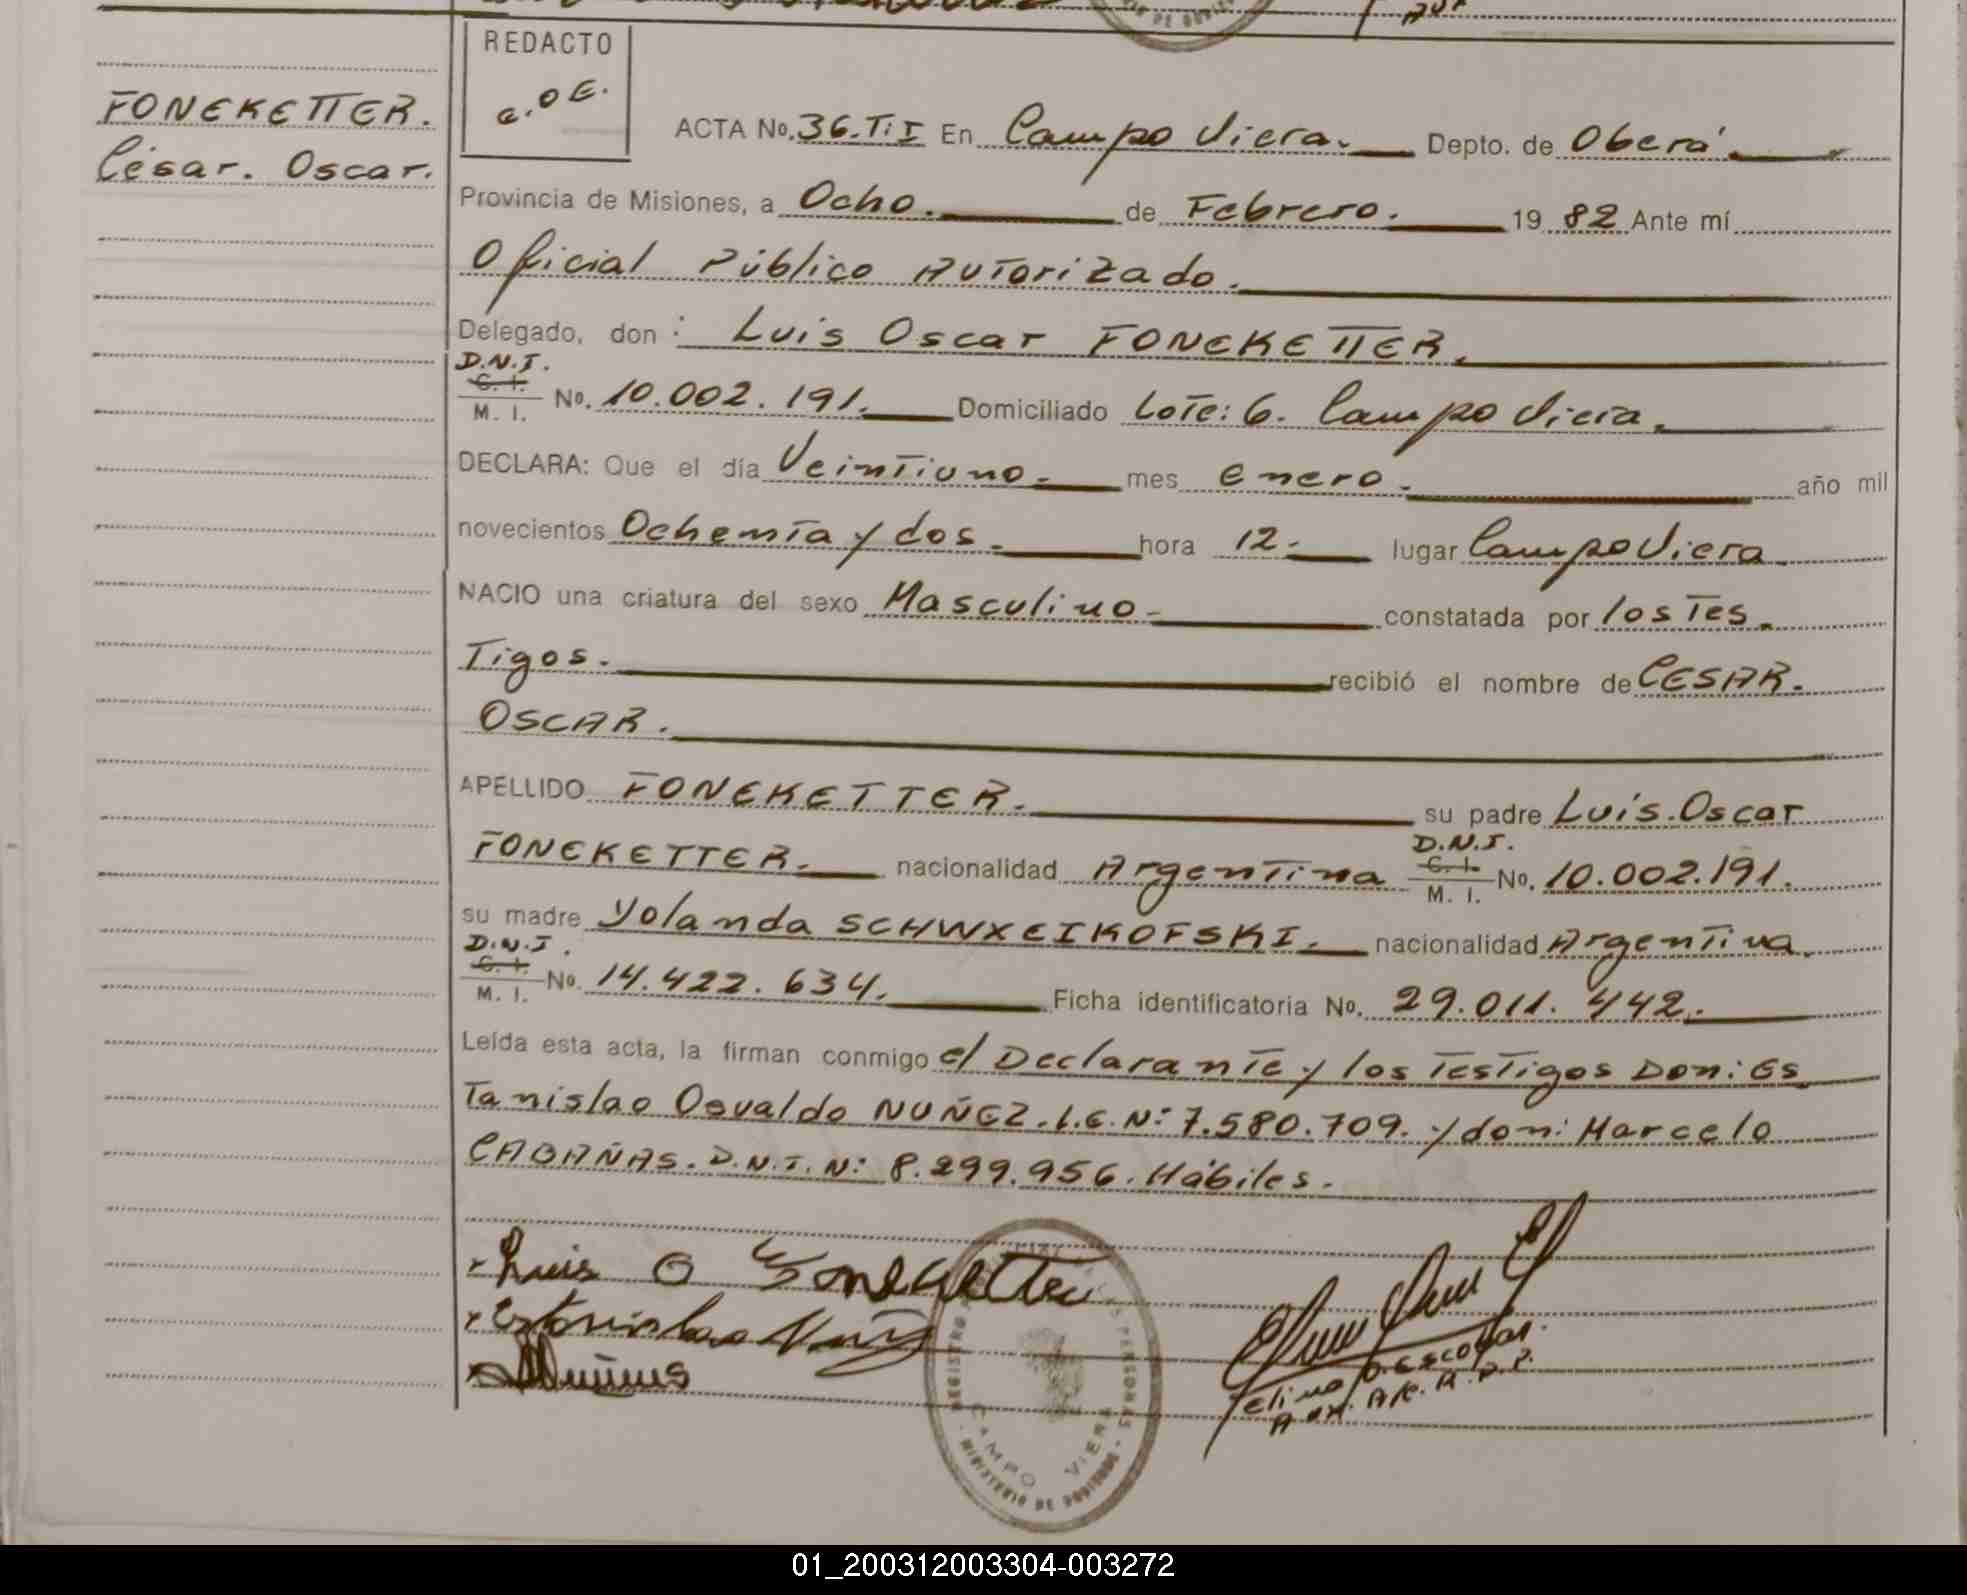 REDACTO
FONEKETTER.
César. Oscar.
ACTA No. 36.T:I En Campo Viera. Depto. de Oberá.
Provincia de Misiones, a Ocho. de Febrero. 19 82 Ante mí
Oficial Público Autorizado.
Delegado, don: Luis Oscar FONEKETTER.
D.N.I.
C. I.
M. I. No. 10.002.191. Domiciliado Lote: 6. Campo Viera.
DECLARA: Que el día Veintiuno. mes enero. año mil
novecientos Ochenta y dos. hora 12. lugar Campo Viera
NACIO una criatura del sexo Masculino. constatada por los Tes.
Tigos. recibió el nombre de CESAR.
OSCAR.
APELLIDO FONEKETTER. su padre Luis. Oscar
D.N.I.
FONEKETTER. nacionalidad Argentina C. I. M. I. No. 10.002.191.
su madre Yolanda SCHWXEIKOFSKI. nacionalidad Argentina.
D.N.I.
C. I.
M. I. No. 14.422.634. Ficha identificatoria No. 29.011.442.
Leída esta acta, la firman conmigo el Declarante y los Testigos Don: Es
Tanislao Osvaldo NUÑEZ. L.E.N: 7.580.709. y don: Marcelo
CABAÑAS. D.N.I.N: 8.299.956. Hábiles.
Luis O Foneketter
Estanislao Nuñez
REGISTRO PERSONAS
CAMPO VIERA
MINISTERIO DE GOBIERNO
01_200312003304-003272